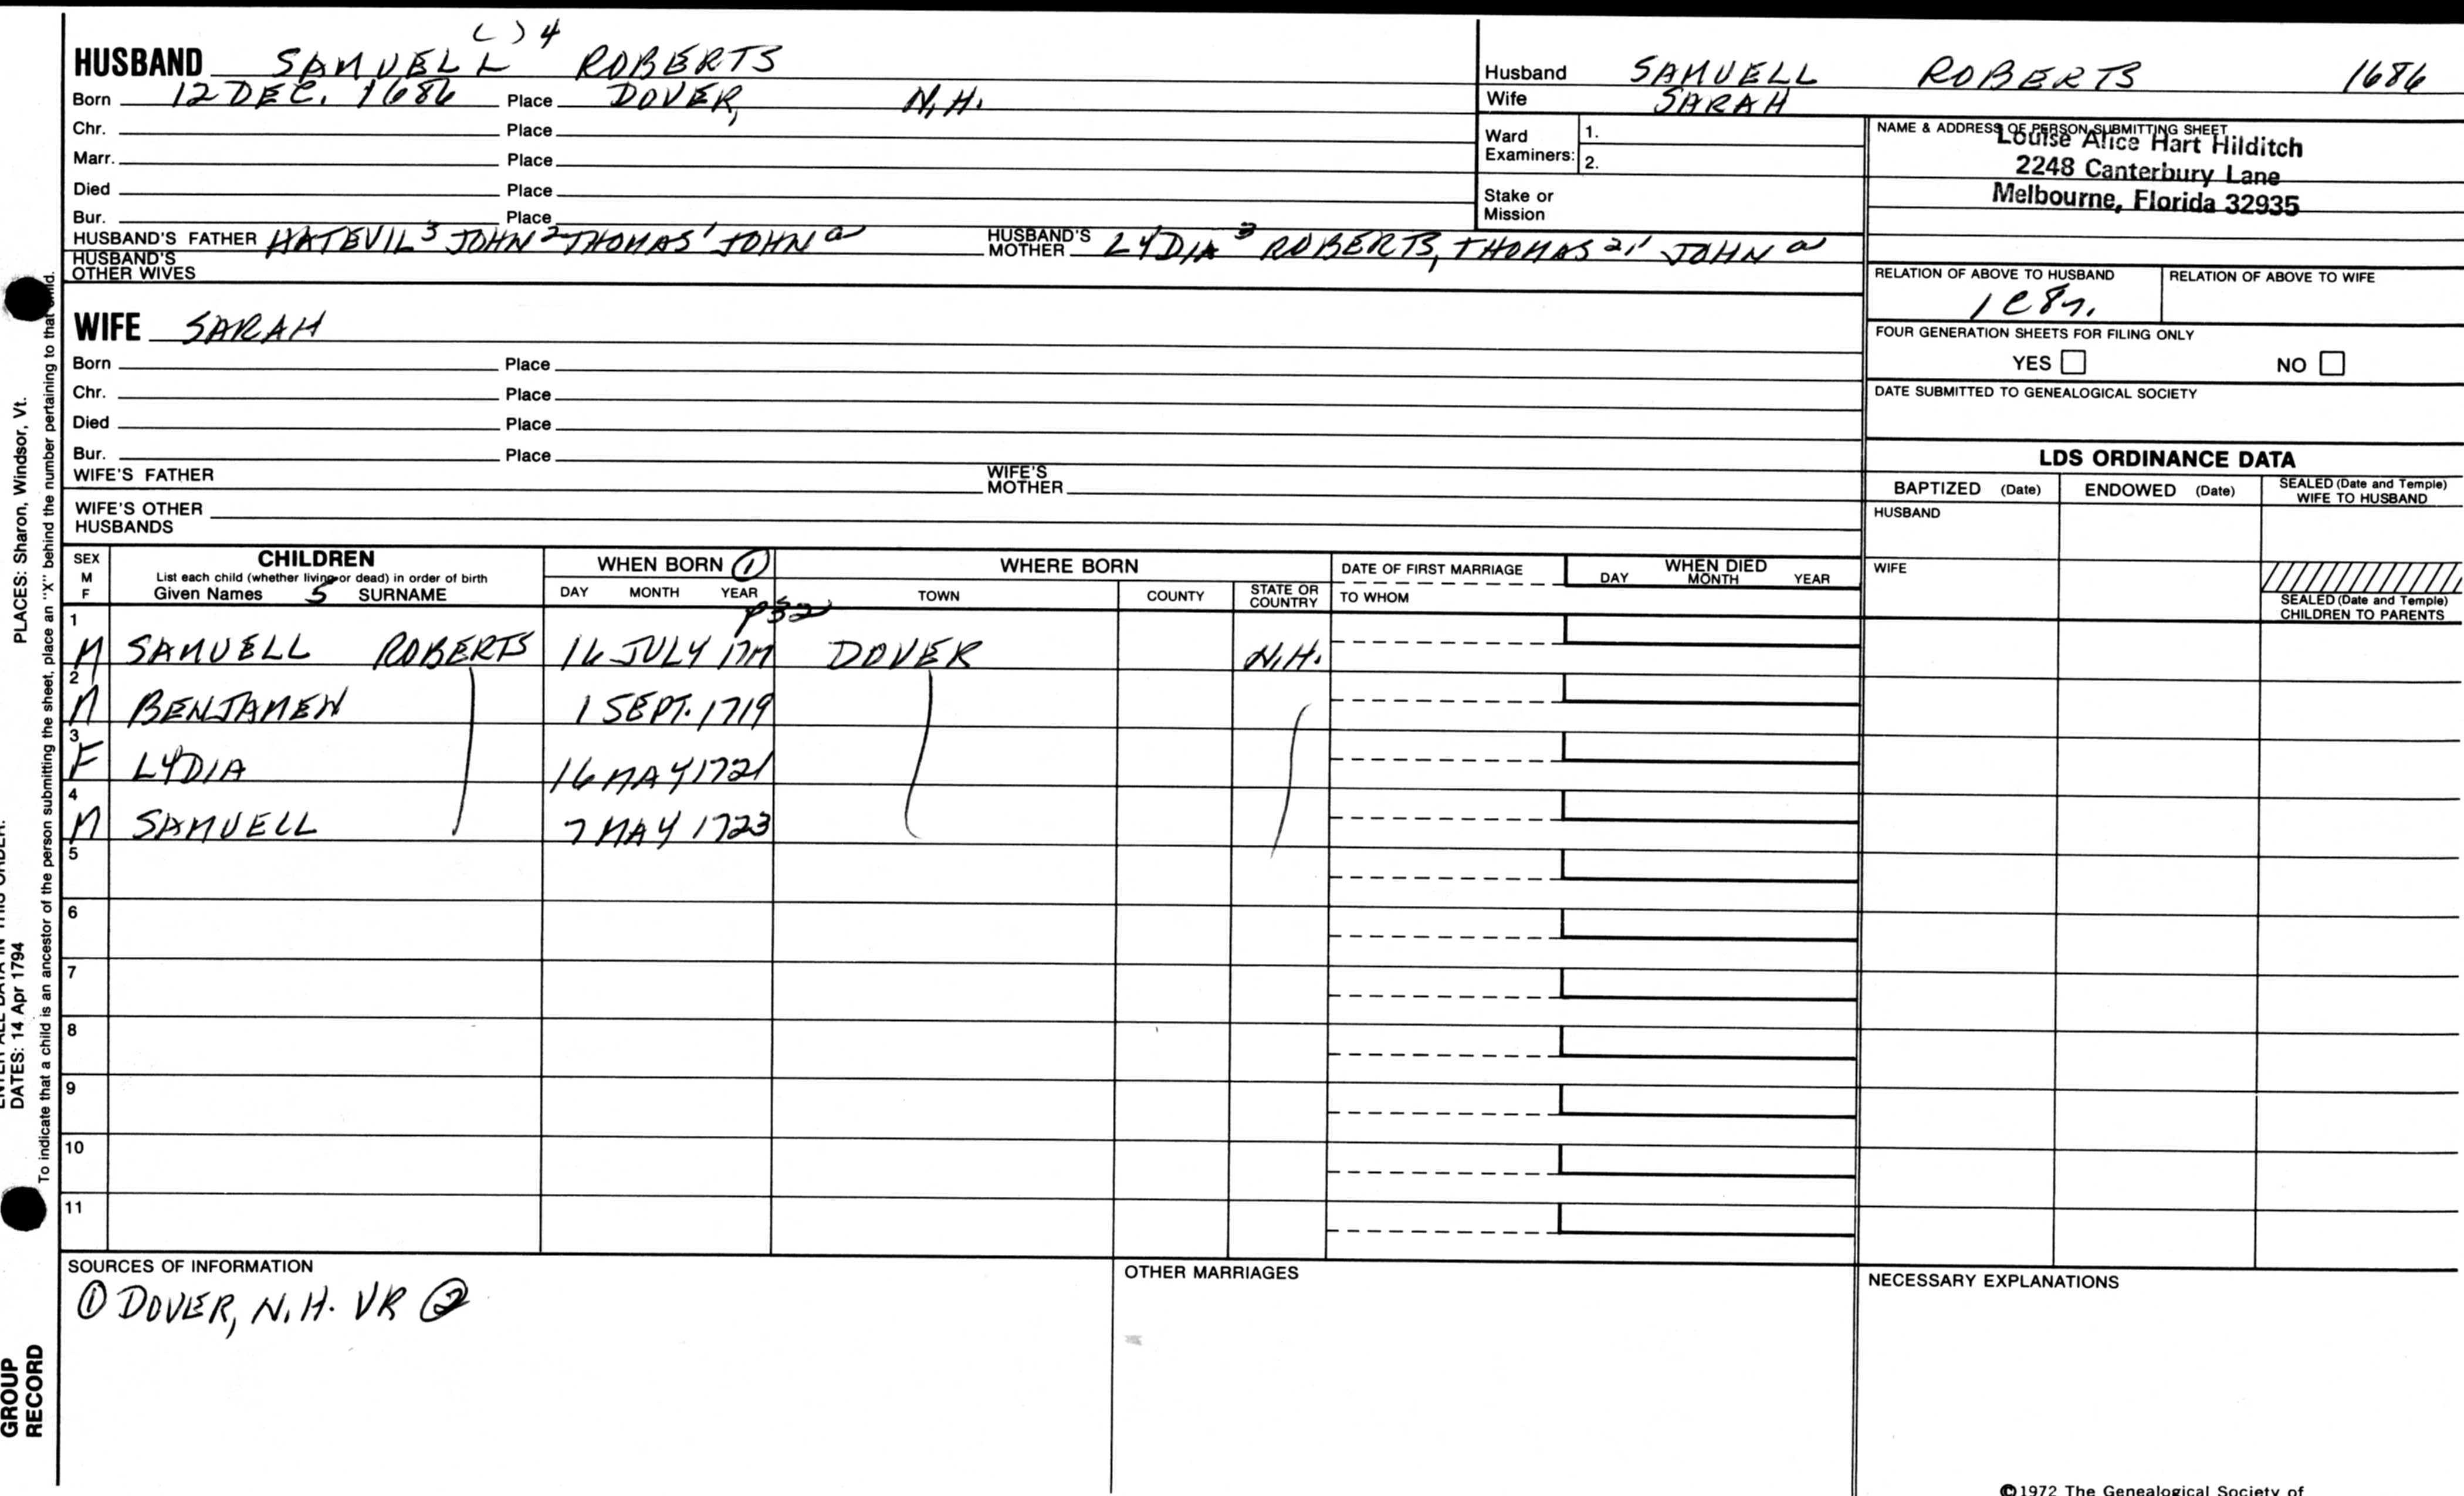 ( ) 4
HUSBAND SAMUELL ROBERTS
Born 12 DEC. 1686 Place DOVER, N.H.
Chr. Place
Marr. Place
Died Place
Bur. Place
HUSBAND'S FATHER HATEVIL 3 JOHN 2 THOMAS 1 JOHN a HUSBAND'S MOTHER LYDIA 3 ROBERTS, THOMAS 2,1 JOHN a
HUSBAND'S OTHER WIVES
WIFE SARAH
Born Place
Chr. Place
Died Place
Bur. Place
WIFE'S FATHER WIFE'S MOTHER
WIFE'S OTHER HUSBANDS
Husband SAMUELL ROBERTS 1686
Wife SARAH
Ward Examiners: 1.
2.
Stake or Mission
NAME & ADDRESS OF PERSON SUBMITTING SHEET
Louise Alice Hart Hilditch
2248 Canterbury Lane
Melbourne, Florida 32935
RELATION OF ABOVE TO HUSBAND RELATION OF ABOVE TO WIFE
FOUR GENERATION SHEETS FOR FILING ONLY
YES NO
DATE SUBMITTED TO GENEALOGICAL SOCIETY
LDS ORDINANCE DATA
BAPTIZED (Date) ENDOWED (Date) SEALED (Date and Temple) WIFE TO HUSBAND
HUSBAND
WIFE
SEALED (Date and Temple) CHILDREN TO PARENTS
SEX M F
CHILDREN
List each child (whether living or dead) in order of birth
Given Names 5 SURNAME
WHEN BORN ①
DAY MONTH YEAR
p52
WHERE BORN
TOWN COUNTY STATE OR COUNTRY
DATE OF FIRST MARRIAGE
TO WHOM
WHEN DIED
DAY MONTH YEAR
1 M SAMUELL ROBERTS 16 JULY 1717 DOVER N.H.
2 M BENJAMEN 1 SEPT. 1719
3 F LYDIA 16 MAY 1721
4 M SAMUELL 7 MAY 1723
5
6
7
8
9
10
11
SOURCES OF INFORMATION
① DOVER, N.H. VR ②
OTHER MARRIAGES
NECESSARY EXPLANATIONS
©1972 The Genealogical Society of
PLACES: Sharon, Windsor, Vt.
DATES: 14 Apr 1794
To indicate that a child is an ancestor of the person submitting the sheet, place an "X" behind the number pertaining to that child.
GROUP
RECORD